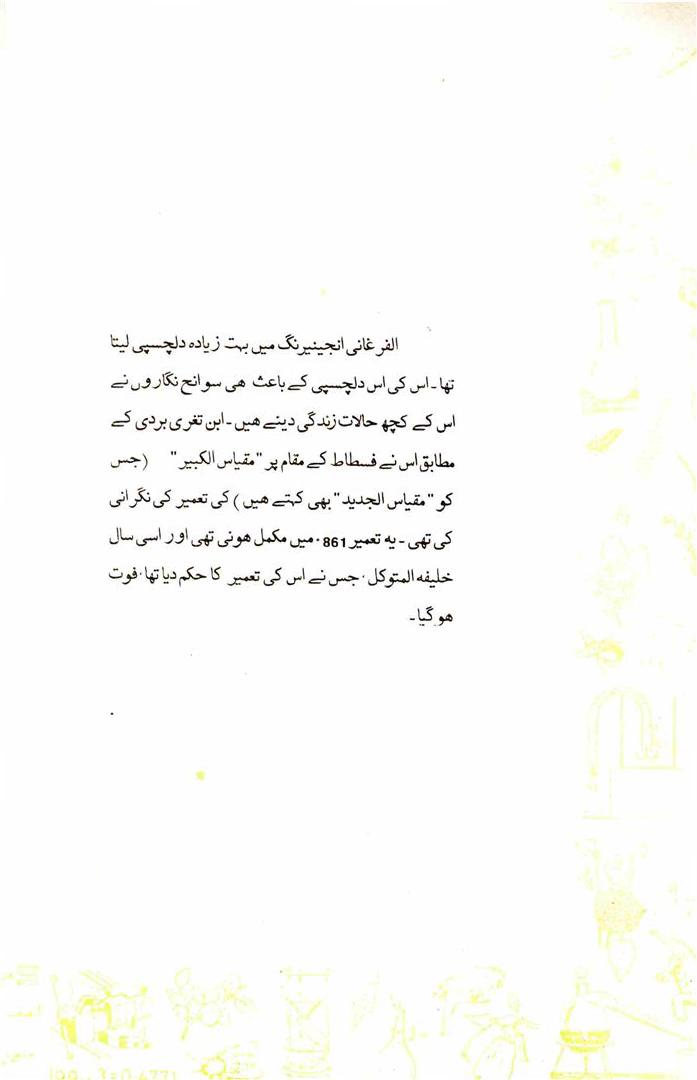 الفرغانی انجینیرنگ میں بہت زیادہ دلچسپی لیتا
تھا۔ اس کی اس دلچسپی کے باعث ھی سوانح نگاروں نے
اس کے کچھ حالات زندگی دیئے ھیں۔ ابن تغری بردی کے
مطابق اس نے فسطاط کے مقام پر "مقیاس الکبیر" (جس
کو "مقیاس الجدید" بھی کہتے ھیں) کی تعمیر کی نگرانی
کی تھی۔ یہ تعمیر 861ء میں مکمل ھوئی تھی اور اسی سال
خلیفہ المتوکل، جس نے اس کی تعمیر کا حکم دیا تھا، فوت
ھوگیا۔